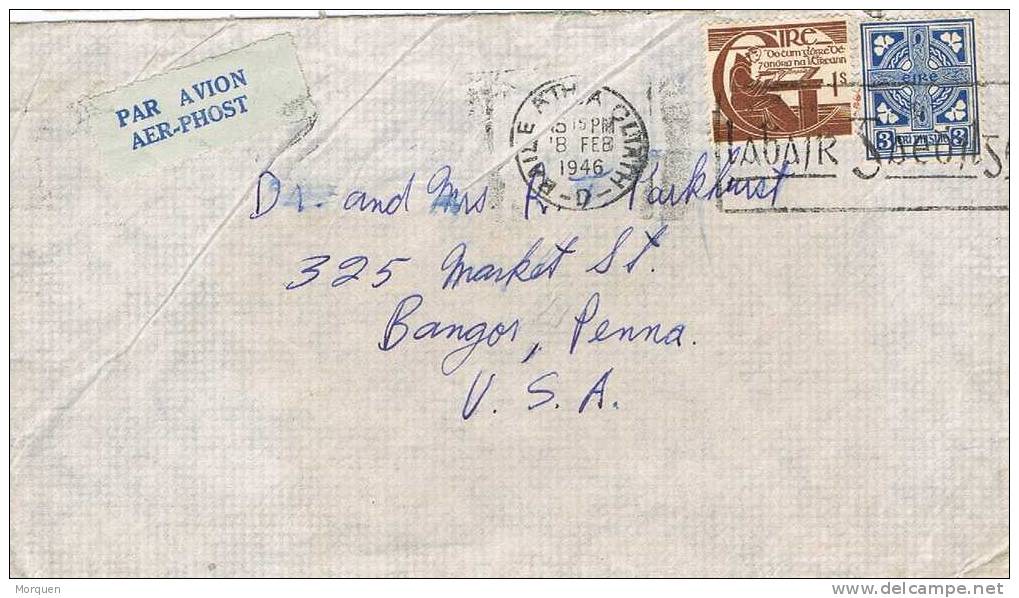 PAR AVION
AER-PHOST
BAILE ÁTHA CLIATH
PM
18 FEB
1946
EIRE
Do ċum glóire Dé
7 onóra na hÉireann
1s
éire
3 3
Labair Gaedilge
Dr. and Mrs R. Parkhurst
325 Market St.
Bangor, Penna.
U. S. A.
Morquen
delcampe.net